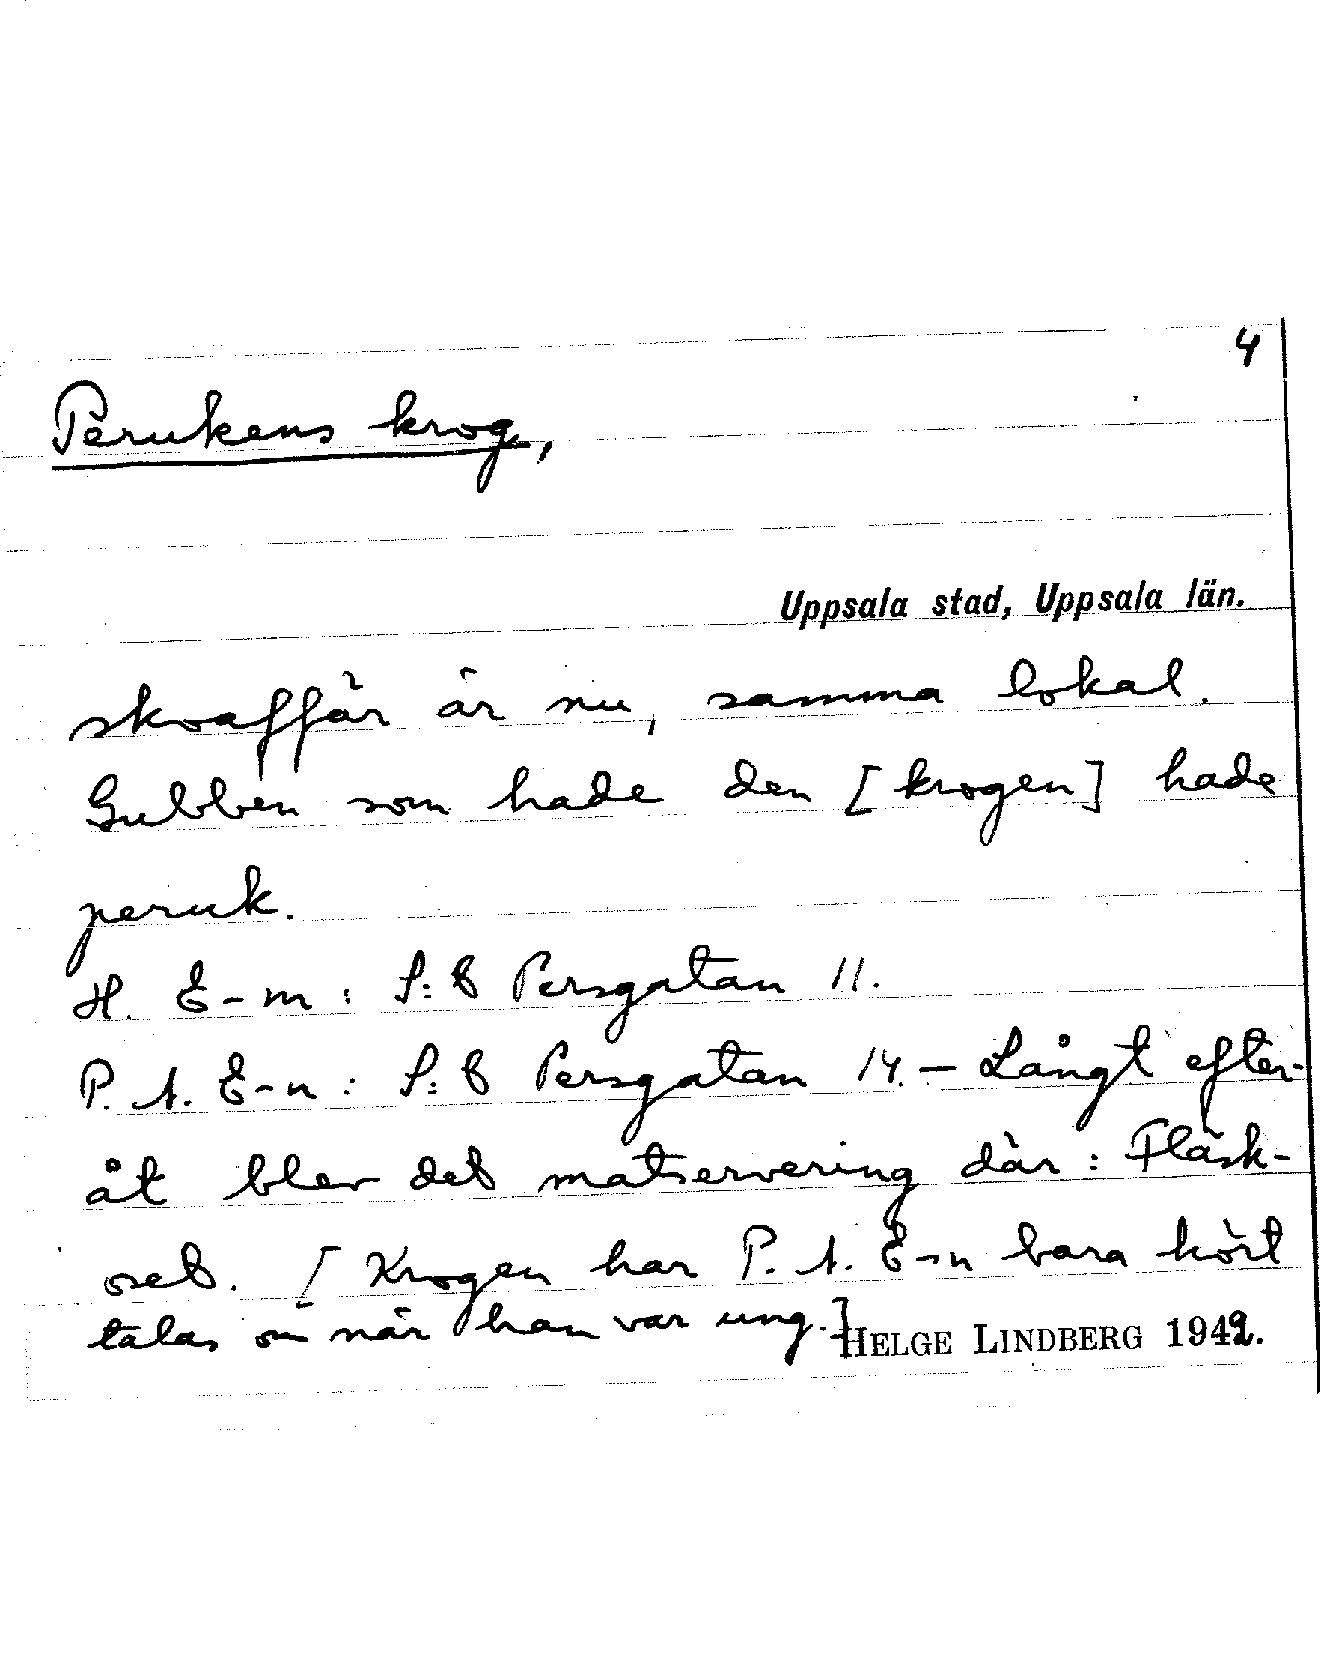 4
Perukens krog,
Uppsala stad, Uppsala län.
skoaffär är nu, samma lokal.
Gubben som hade den [krogen] hade
peruk.
H. E-m: S:t Persgatan 11.
P. A. E-n: S:t Persgatan 14. — Långt efter-
åt blev det matservering där: Fläsk-
oset. [Krogen har P. A. E-n bara hört
talas om när han var ung.]
HELGE LINDBERG 1942.